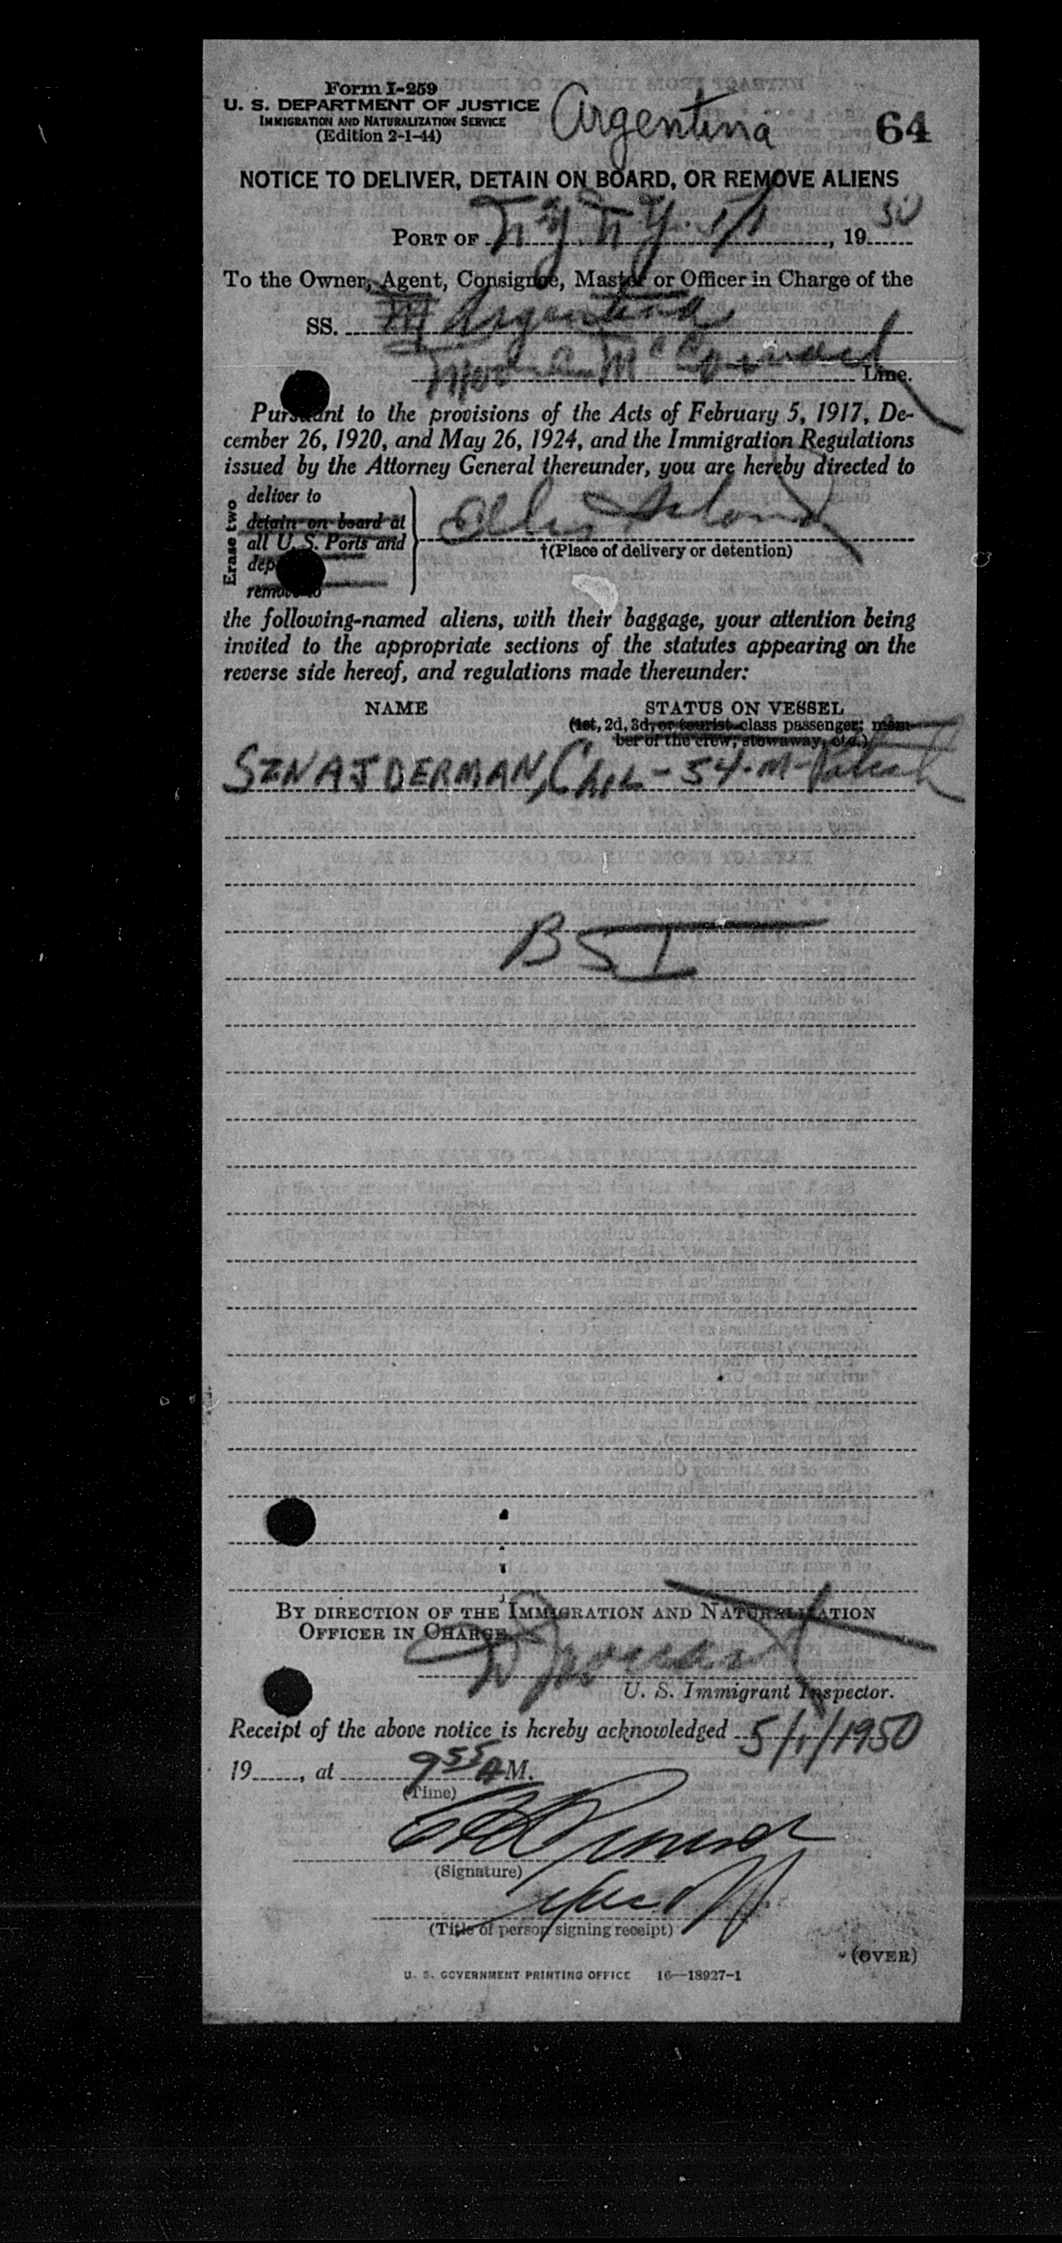 Form I-259
U. S. DEPARTMENT OF JUSTICE
IMMIGRATION AND NATURALIZATION SERVICE
(Edition 2-1-44)
Argentina
64
NOTICE TO DELIVER, DETAIN ON BOARD, OR REMOVE ALIENS
PORT OF N.Y. N.Y. 5/1, 19 50
To the Owner, Agent, Consignee, Master or Officer in Charge of the
SS. Argentina
Moore McCormack Line.
Pursuant to the provisions of the Acts of February 5, 1917, De-
cember 26, 1920, and May 26, 1924, and the Immigration Regulations
issued by the Attorney General thereunder, you are hereby directed to
Erase two
deliver to
detain on board at
all U. S. Ports and
remove to
Ellis Island
†(Place of delivery or detention)
the following-named aliens, with their baggage, your attention being
invited to the appropriate sections of the statutes appearing on the
reverse side hereof, and regulations made thereunder:
NAME
STATUS ON VESSEL
(1st, 2d, 3d, or tourist-class passenger; mem-
ber of the crew, stowaway, etc.)
SZNAJDERMAN, Chil - 54-M-Polish
BSI
BY DIRECTION OF THE IMMIGRATION AND NATURALIZATION
OFFICER IN CHARGE
U. S. Immigrant Inspector.
Receipt of the above notice is hereby acknowledged 5/1/1950
19, at 9 55 A M.
(Time)
(Signature)
(Title of person signing receipt)
(OVER)
U. S. GOVERNMENT PRINTING OFFICE 16—18927-1